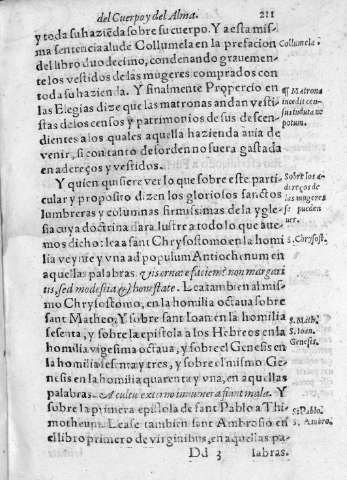 del Cuerpo y del Alma. 211
y toda su haziẽda sobre su cuerpo. Y a esta mis-
ma sentencia alude Collumela en la prefacion
del libro duo decimo, condenando grauemen-
te los vestidos de las mugeres comprados con
toda su hazienda. Y finalmente Propercio en
las Elegias dize que las matronas andan vesti-
das de los censos y patrimonios de sus descen-
dientes a los quales aquella hazienda auia de
venir, si con tanto desorden no fuera gastada
en adereços y vestidos.
Y quien quisiere ver lo que sobre este parti-
cular y proposito dizen los gloriosos sanctos
lumbreras y columnas firmissimas de la ygle-
sia cuya doctrina da lustre a todo lo que aue-
mos dicho: lea a sant Chrysostomo en la homi
lia veynte y vna ad populum Antiochenum en
aquellas palabras. Vis ornare faciem? non margari
tis, sed modestia & honestate. Lea tambien al mis-
mo Chrysostomo, en la homilia octaua sobre
sant Matheo. Y sobre sant Ioan en la homilia
sesenta, y sobre la epistola a los Hebreos en la
homilia vigesima octaua, y sobre el Genesis en
la homilia sesenta y tres, y sobre el mismo Ge-
nesis en la homilia quarenta y vna, en aquellas
palabras. A cultu externo innumera fiant mala. Y
sobre la primera epistola de sant Pablo a Thi-
motheum. Lease tambien sant Ambrosio en
el libro primero de virginibus, en aquellas pa-
Dd 3 labras.
Collumela.
¶ Matrona
incedit cen-
sus induta ne
potum.
Sobre los a-
dereços de
las mugeres
se pueden
uer.
S. Chrysost.
S. Math.
S. Ioan.
Genesis.
S. Pablo.
S. Ambro.